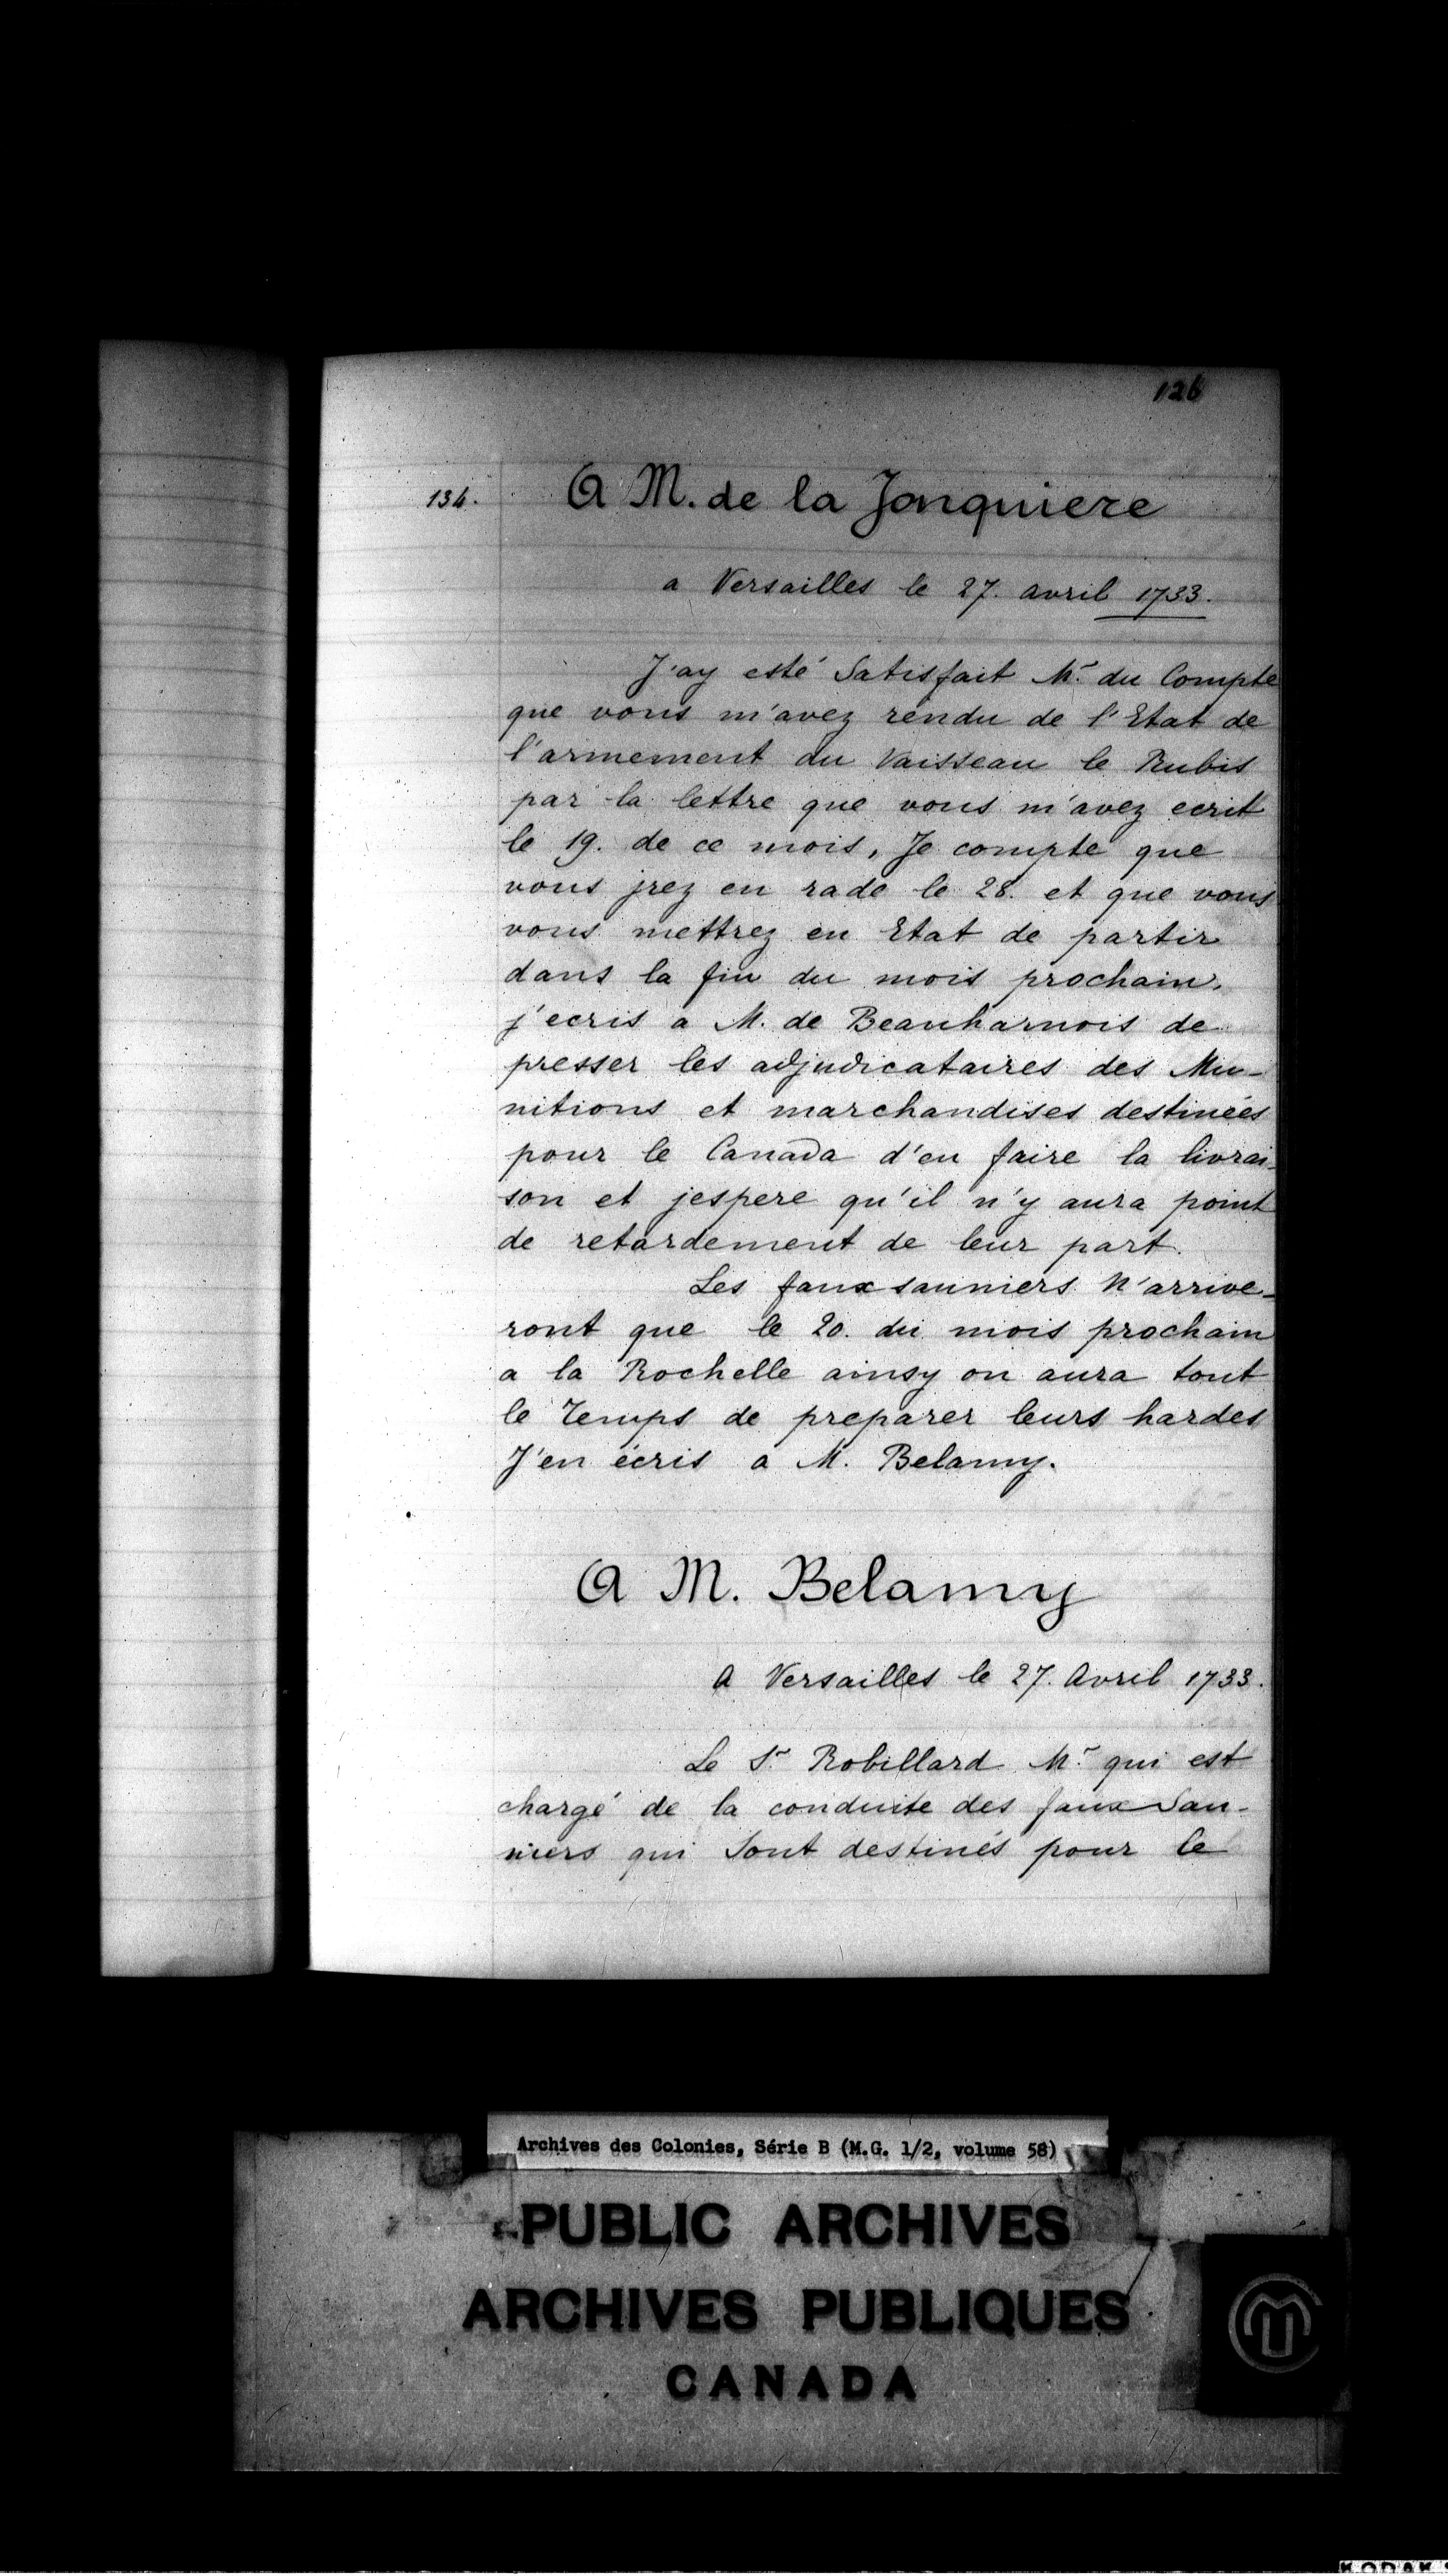 126
134. A M. de la Jonquiere
a Versailles le 27. avril 1733.
J'ay esté Satisfait Mr. du Compte
que vous m'avez rendu de l'Etat de
l'armement du Vaisseau le Rubis
par la lettre que vous m'avez ecrit
le 19. de ce mois, Je compte que
vous jrez en rade le 28. et que vous
vous mettrez en Etat de partir
dans la fin du mois prochain.
j'ecris a M. de Beauharnois de
presser les adjudicataires des Mu-
nitions et marchandises destinées
pour le Canada d'en faire la livrai-
son et jespere qu'il n'y aura point
de retardement de leur part.
Les faux sauniers N'arrive-
ront que le 20. du mois prochain
a la Rochelle ainsy on aura tout
le Temps de preparer leurs hardes
J'en écris a M. Belamy.
A M. Belamy
A Versailles le 27. Avril 1733.
Le Sr. Robillard Mr. qui est
chargé de la conduite des faux Sau-
niers qui Sont destinés pour le
Archives des Colonies, Série B (M.G. 1/2, volume 58)
PUBLIC ARCHIVES
ARCHIVES PUBLIQUES
CANADA